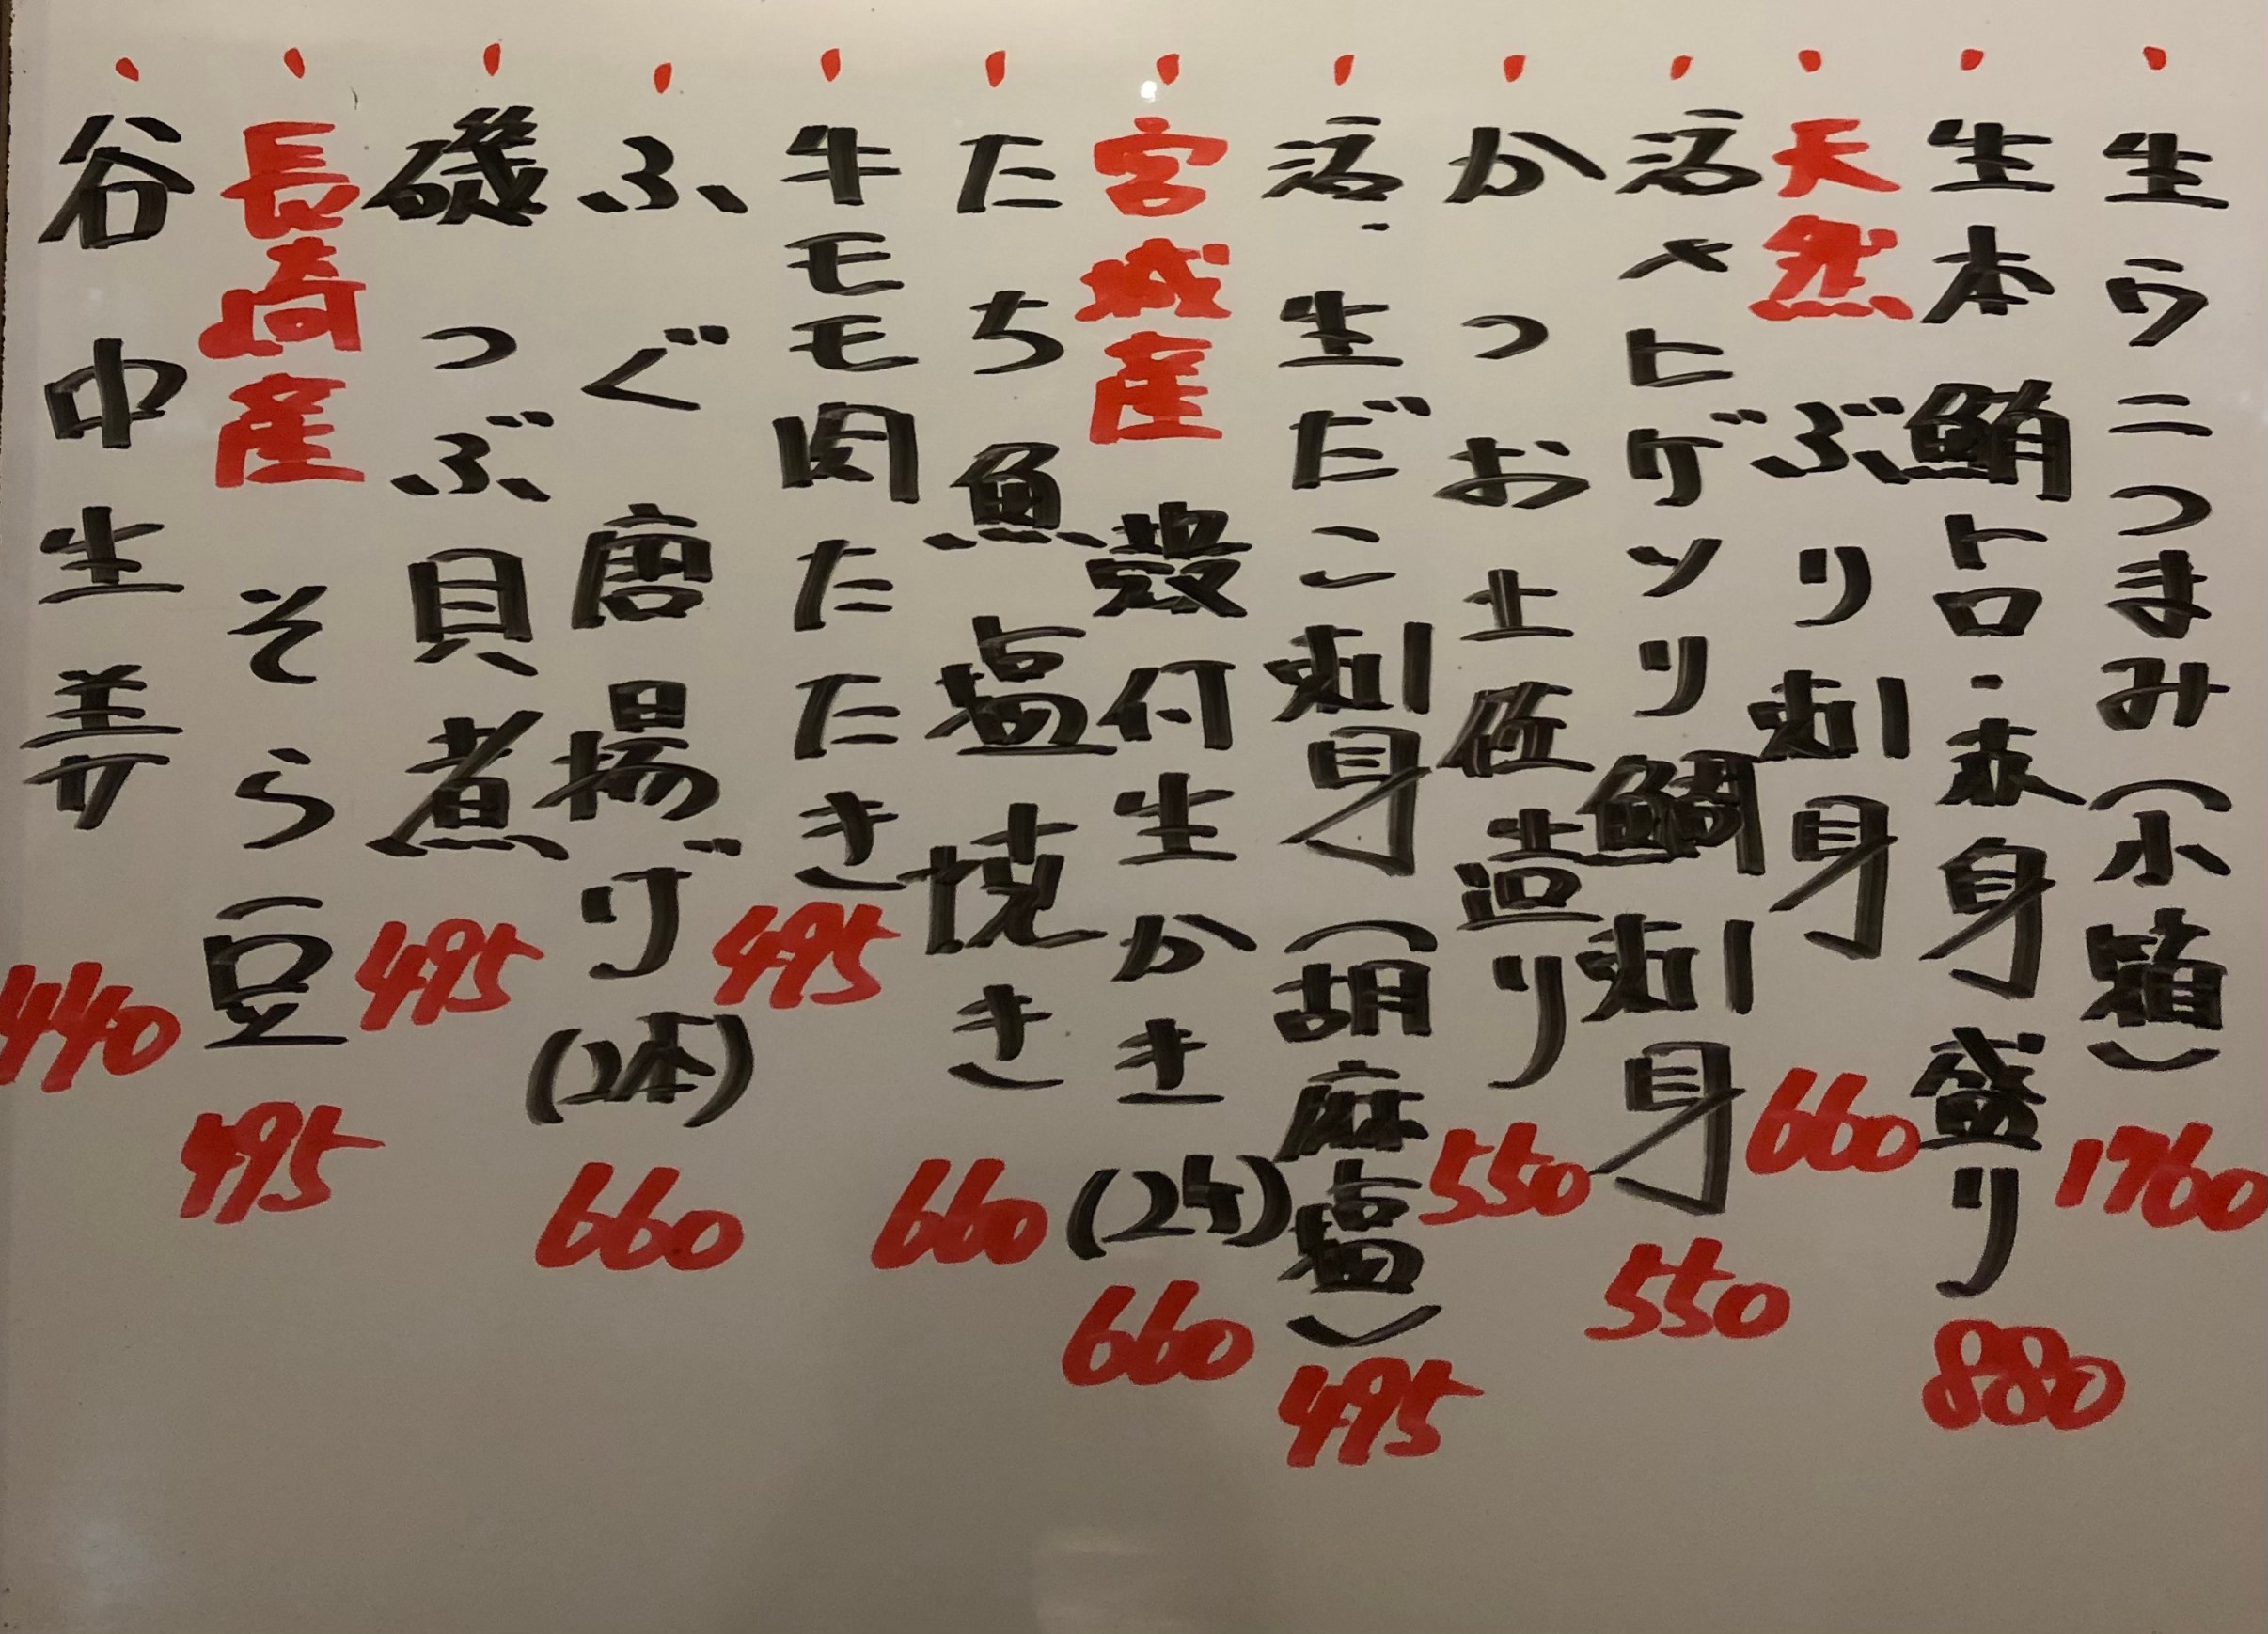 ・生ウニつまみ(小箱) 1760
・生本鮪トロ・赤身盛り 880
・天然ぶり刺身 660
・活〆ヒゲソリ鯛刺身 550
・かつお土佐造り 550
・活・生だこ刺身(胡麻塩) 495
・宮城産殻付生かき(2ケ) 660
・たち魚塩焼き 660
・牛モモ肉たたき 495
・ふぐ唐揚げ(2本) 660
・磯つぶ貝煮 495
・長崎産そら豆 495
・谷中生姜 440